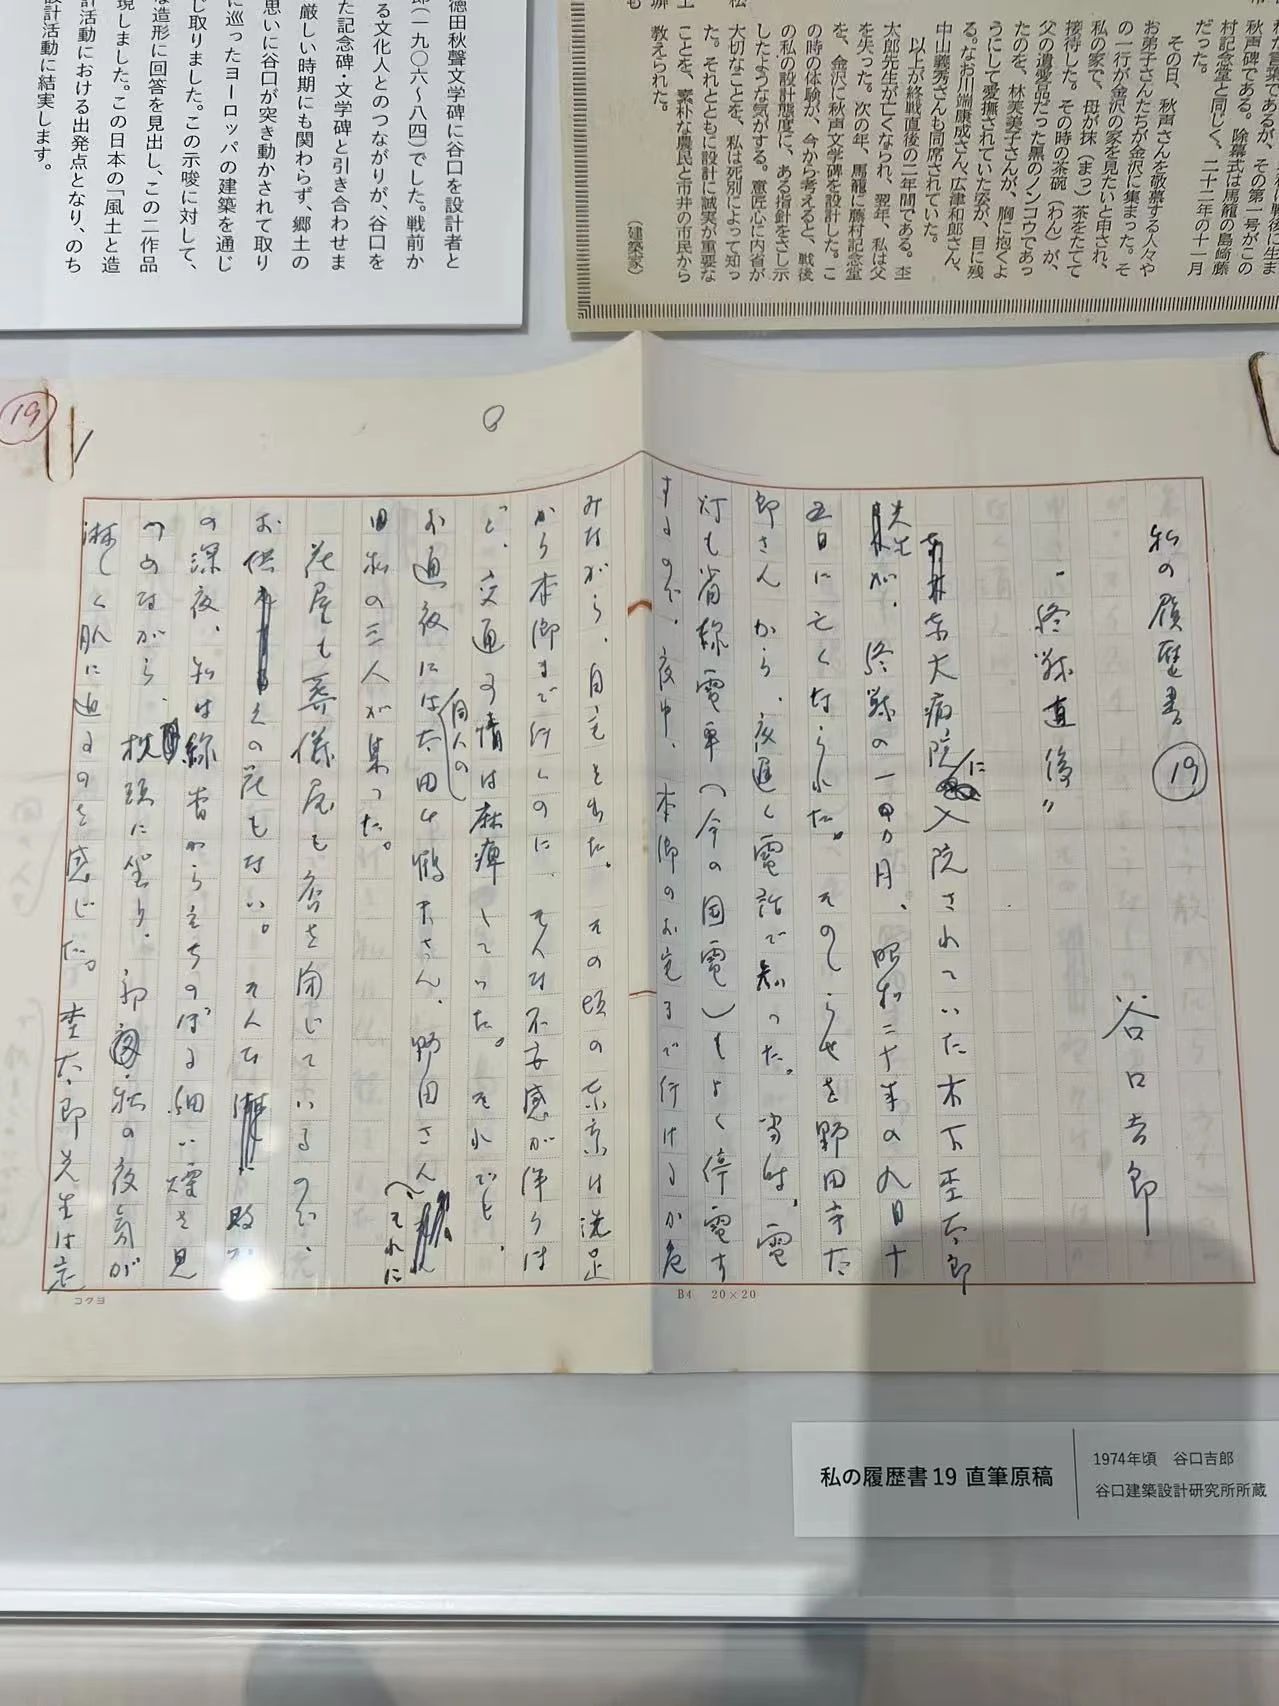 が言葉であるが、その第一号がこの
秋声碑である。除幕式は馬籠の島崎藤
村記念堂と同じく、二十二年の十一月
だった。
その日、秋声さんを敬慕する人々や
お弟子さんたちが金沢に集まった。そ
の一行が金沢の家を見たいと申され、
私の家で、母が抹（まっ）茶をたてて
接待した。その時の茶碗（わん）が、
父の遺愛品だった黒のノンコウであっ
たのを、林芙美子さんが、胸に抱くよ
うにして愛撫されていた姿が、目に残
る。なお川端康成さん、広津和郎さん、
中山義秀さんも同席されていた。
以上が終戦直後の二年間である。杢
太郎先生が亡くなられ、翌年、私は父
を失った。次の年、馬籠に藤村記念堂
を、金沢に秋声文学碑を設計した。こ
の時の体験が、今から考えると、戦後
の私の設計態度に、ある指針をさし示
したような気がする。意匠心に内省が
大切なことを、私は死別によって知っ
た。それとともに設計に誠実が重要な
ことを、素朴な農民と市井の市民から
教えられた。
（建築家）
徳田秋聲文学碑に谷口を設計者と
郎（一九〇六～八四）でした。戦前か
る文化人とのつながりが、谷口を
た記念碑・文学碑と引き合わせま
厳しい時期にも関わらず、郷土の
思いに谷口が突き動かされて取り
に巡ったヨーロッパの建築を通じ
じ取りました。この示唆に対して、
な造形に回答を見出し、この二作品
現しました。この日本の「風土と造
計活動における出発点となり、のち
設計活動に結実します。
19
8
私の履歴書 19
"終戦直後"
谷口吉郎
東大病院に入院されていた木下杢太郎
先生が、終戦の一ヵ月、昭和二十年の九月十
五日に亡くなられた。そのしらせを野田宇太
郎さんから、夜遅く電話で知った。当時、電
灯も省線電車（今の国電）もよく停電す
するので、夜中、本郷のお宅まで行けるか危
みながら、自宅を出た。その頃の東京は洗足
から本郷まで行くのに、そんな不安感が伴うほ
ど、交通事情は麻痺していた。それでも、
お通夜には同人の太田千鶴夫さん、野田さん、それに
私の三人が集った。
花屋も葬儀屋も店を閉じているので、
お供えの花もない。そんな敗
の深夜、私は線香から立ちのぼる細い煙を見
つめながら、枕頭に坐り、秋の夜気が
淋しく肌に迫るのを感じた。杢太郎先生は
コクヨ
B4 20×20
私の履歴書19 直筆原稿
1974年頃 谷口吉郎
谷口建築設計研究所所蔵